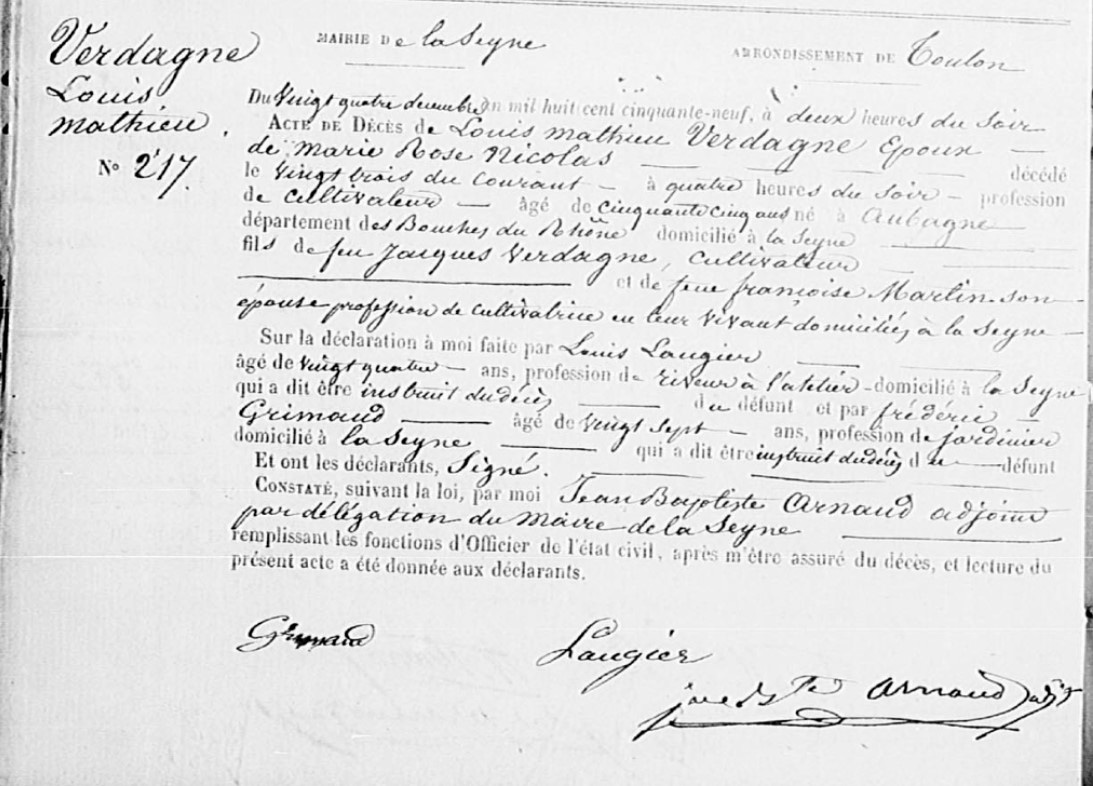 Verdagne
Louis
mathieu.
N° 217.
MAIRIE De la Seyne
ARRONDISSEMENT DE Toulon
Du Vingt quatre decembre an mil huit cent cinquante-neuf, à deux heures du Soir
ACTE DE DÉCÈS de Louis mathieu Verdagne Epoux
de marie Rose Nicolas décédé
le vingt trois du courant à quatre heures du Soir profession
de cultivateur âgé de cinquante cinq ans né à Aubagne
département des Bouches du Rhône domicilié à la Seyne
fils de feu Jacques Verdagne, cultivateur
et de feue françoise Martin son
épouse profession de cultivatrice en leur vivant domiciliés à la Seyne
Sur la déclaration à moi faite par Louis Laugier
âgé de vingt quatre ans, profession de riveur à l'atelier domicilié à la Seyne
qui a dit être instruit du décès du défunt et par fréderic
Grimaud âgé de vingt sept ans, profession de jardinier
domicilié à la Seyne qui a dit être instruit du décès du défunt
Et ont les déclarants, Signé.
CONSTATÉ, suivant la loi, par moi Jean Baptiste Arnaud adjoint
par délégation du Maire de la Seyne
remplissant les fonctions d'Officier de l'état civil, après m'être assuré du décès, et lecture du
présent acte a été donnée aux déclarants.
Grimaud Laugier
Arnaud adjt